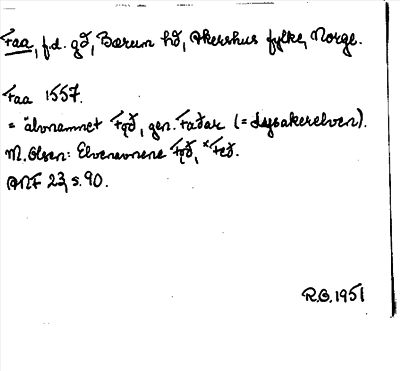 Faa, f.d. gð, Bærum hð, Akershus fylke, Norge.
Faa 1557.
= älvnamnet Fǫð, gen. Faðar (= Lysakerelven).
M. Olsen: Elvenavnene Fǫð, *Feð.
ANF 23, s. 90.
R.O. 1951